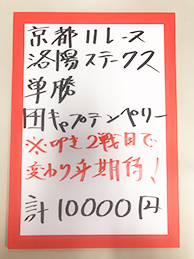 京都11レース
洛陽ステークス
単勝
団キャプテンペリー
※叩き2戦目で
変わり身期待!
計10000円